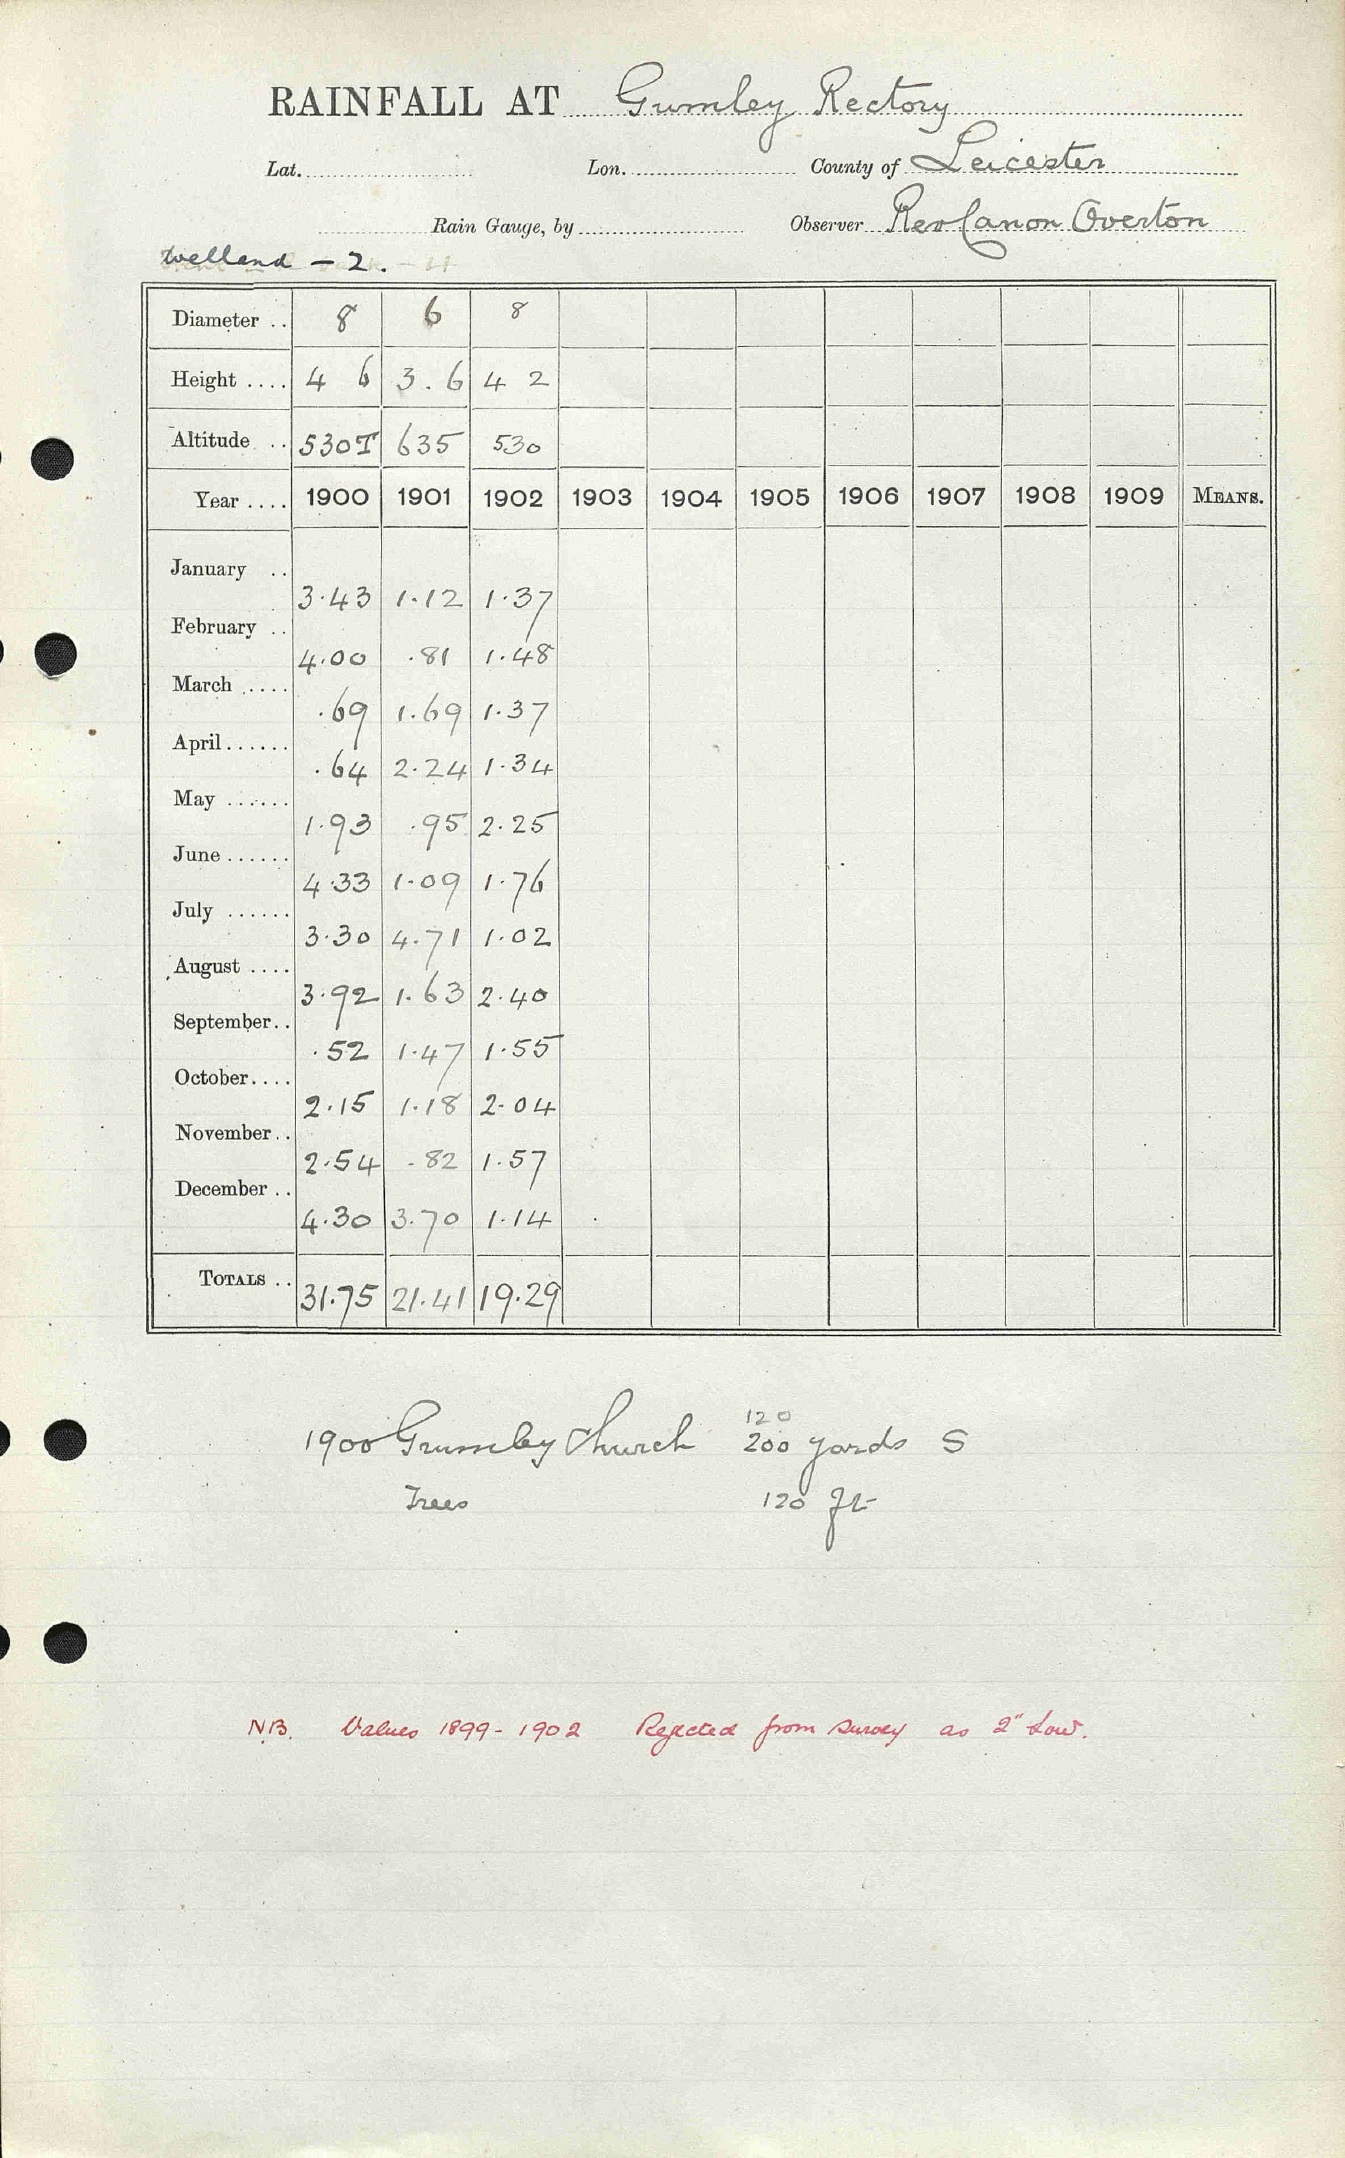 RAINFALL AT Gumley Rectory
Lat. Lon. County of Leicester
Rain Gauge, by Observer Rev Canon Overton
Welland - 2.
Diameter .. 8 6 8
Height .... 4 6 3.6 4 2
Altitude .. 530T 635 530
Year .... 1900 1901 1902 1903 1904 1905 1906 1907 1908 1909 MEANS.
January .. 3.43 1.12 1.37
February .. 4.00 .81 1.48
March .... .69 1.69 1.37
April...... .64 2.24 1.34
May ...... 1.93 .95 2.25
June ...... 4.33 1.09 1.76
July ...... 3.30 4.71 1.02
August .... 3.92 1.63 2.40
September.. .52 1.47 1.55
October.... 2.15 1.18 2.04
November.. 2.54 .82 1.57
December .. 4.30 3.70 1.14
TOTALS .. 31.75 21.41 19.29
120
1900 Gumley Church 200 yards S
Trees 120 ft
NB. Values 1899-1902 Rejected from survey as 2" low.